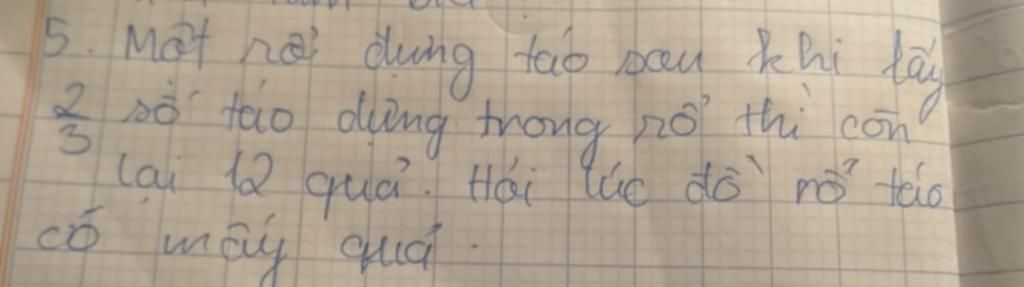 5. Một rổ dựng táo sau khi lấy
2/3 số táo dựng trong rổ thì còn
lại 12 quả. Hỏi lúc đồ rổ táo
có mấy quả.